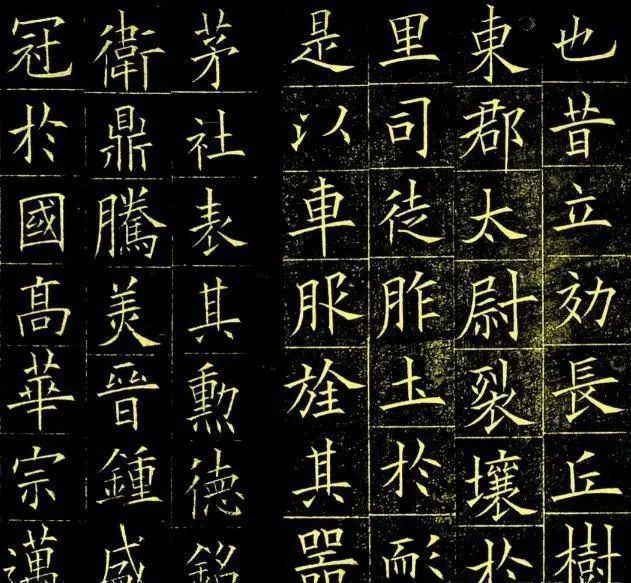 也昔立効長丘樹
東郡太尉裂壤於
里司徒胙土於耏
是以車服旌其器
茅社表其勳德銘
衛鼎騰美晉鍾盛
冠於國髙華宗邁